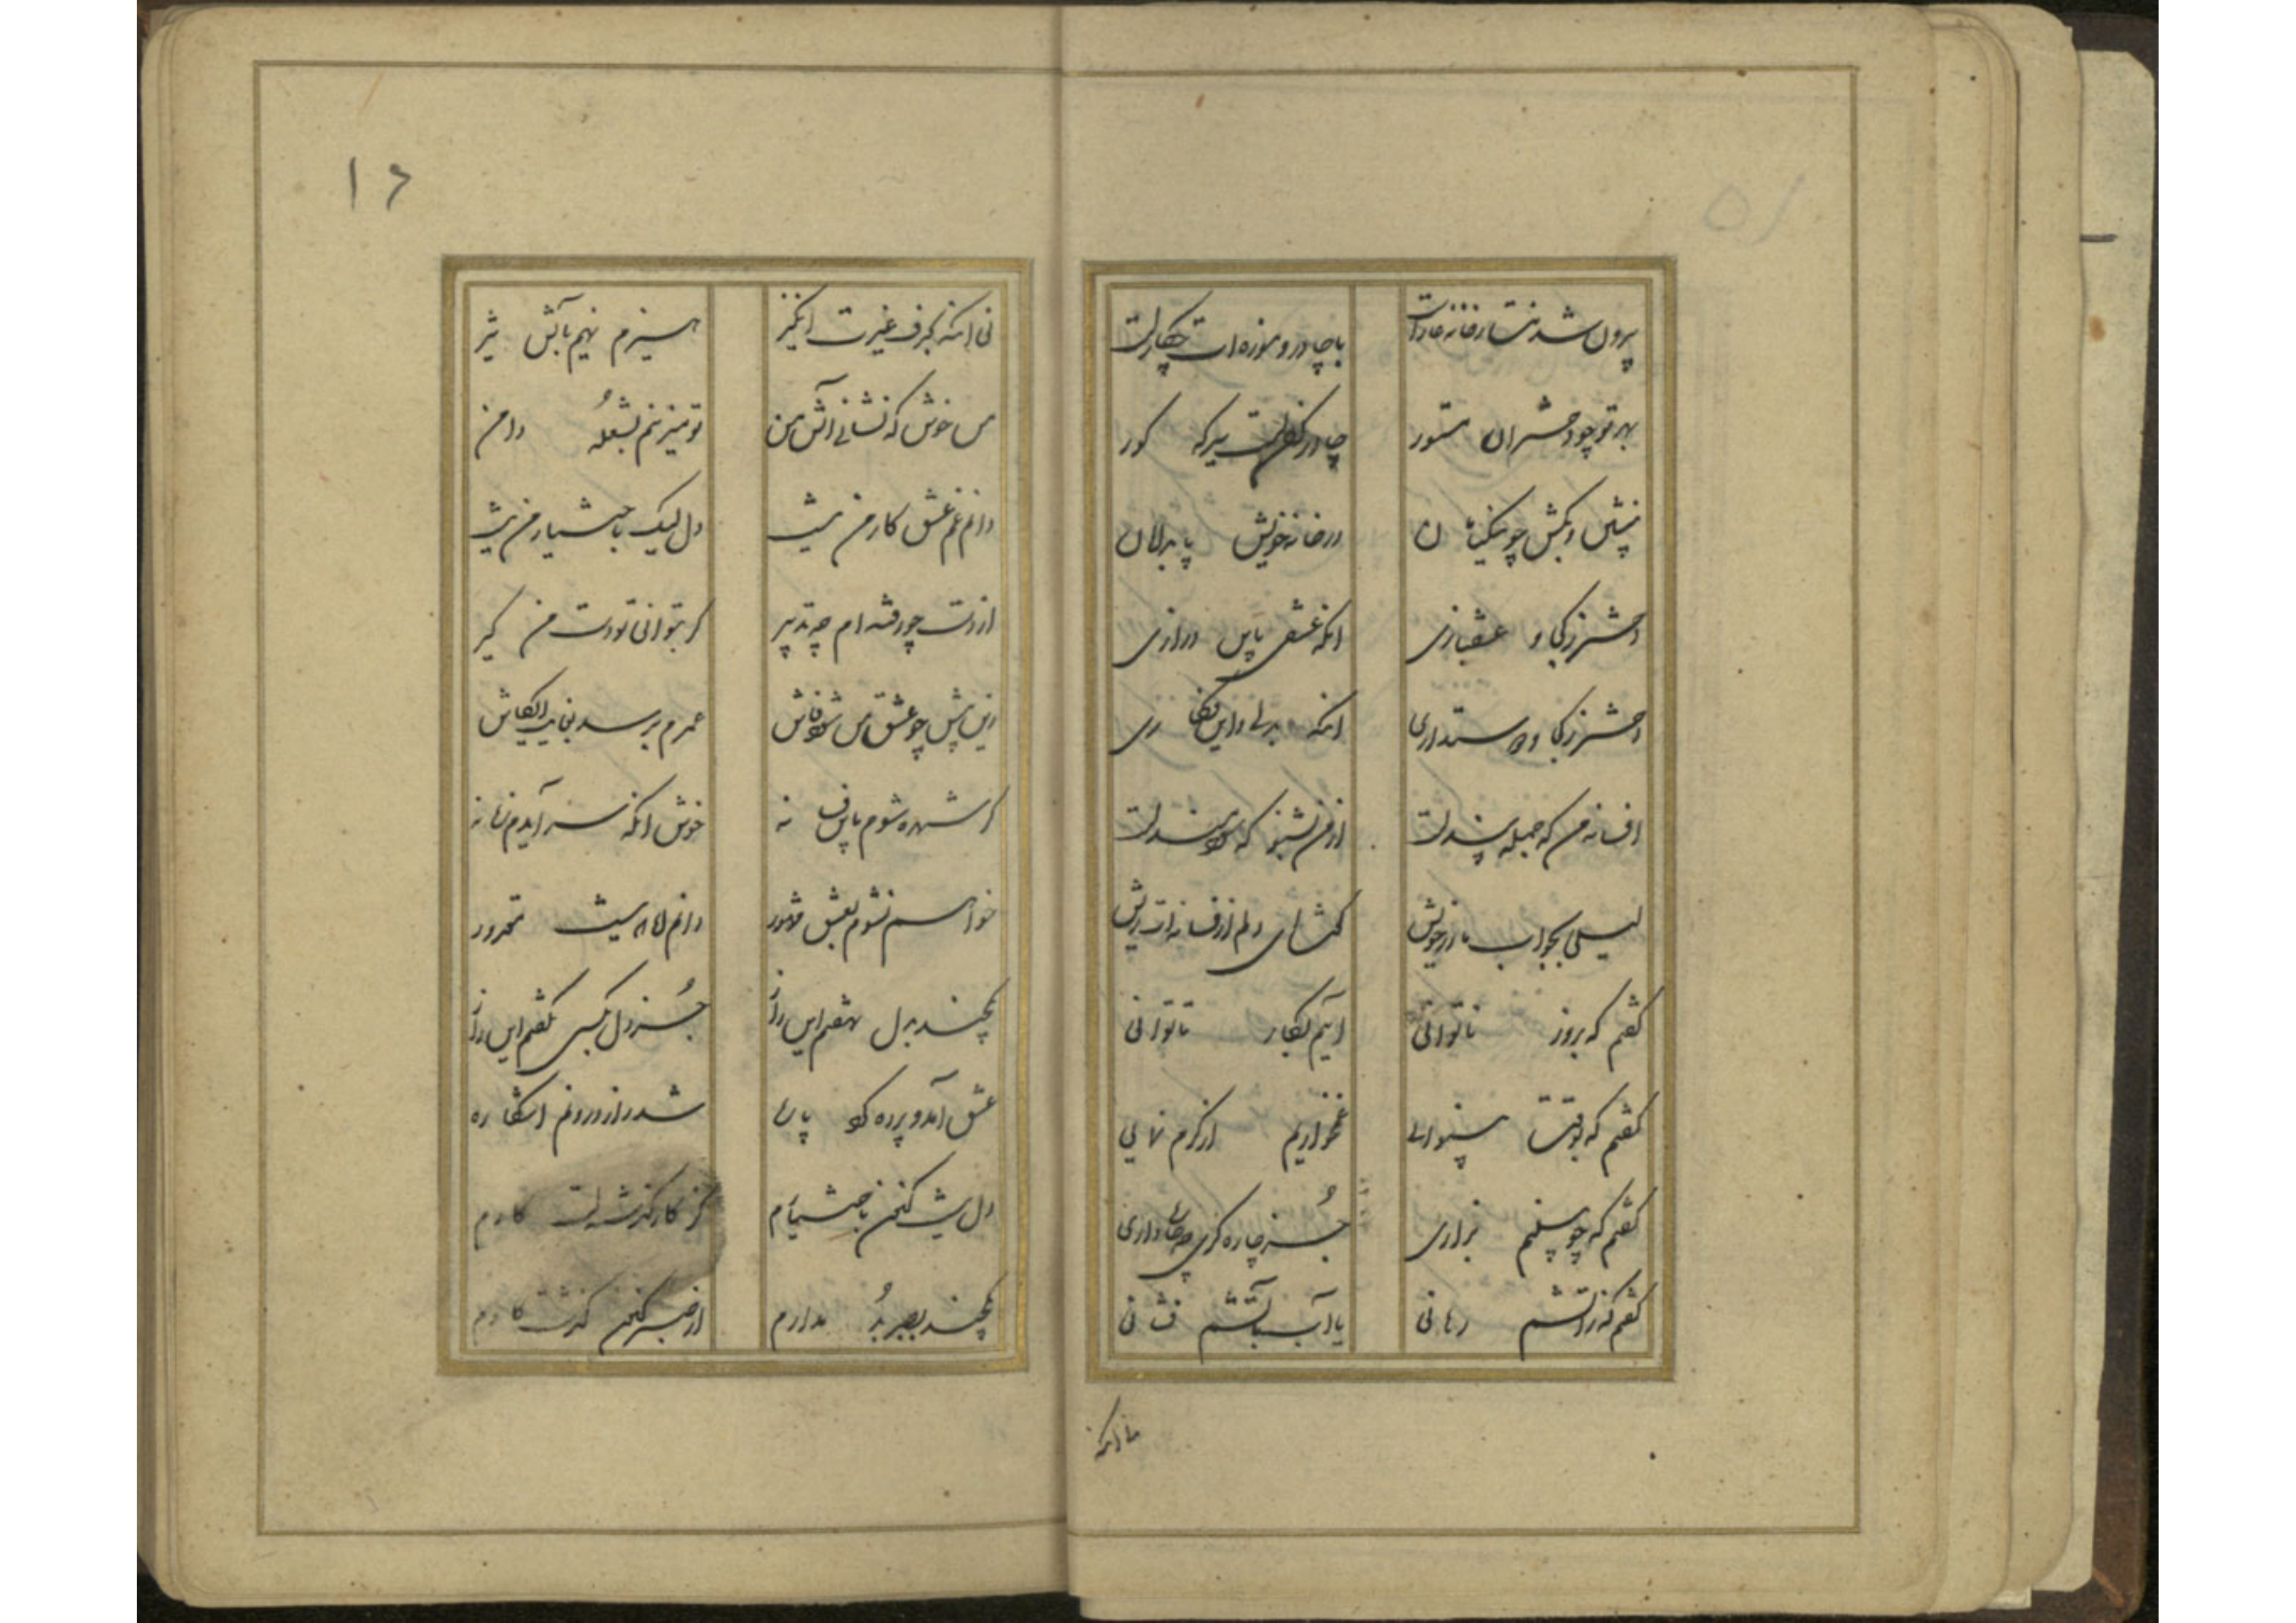 بیرون شدنت از خانه عار است
با چادر و موزه ات چکار است
بهر تو چو دختران مستور
چادر کفن است به که گور
بنشین و بکش چو نیکنامان
در خانه خویش پا بدامان
دختر ز کجا و عشقبازی
آنگه عشقی باین درازی
دختر ز کجا و دوستداری
آنگه بدلی و این فکاری
افسانه من که جمله پند است
از من بشنو که سودمند است
لیلی بجواب مادر خویش
کمشای دلم از فسانه ات ریش
گفتم که بروز ناتوانی
آیم بکار تا توانی
گفتم که بوقت بینوایی
غمخواریم از کرم نمایی
گفتم که چو بینیم بزاری
جز چاره گری چه کار داری
گفتم که ز آتشم رهانی
یا آب بآتشم فشانی
نی آنکه
۱۶
نی آنکه بحرف غیرت انگیز
هیزم نهیم بآتش تیز
من خوش که نشانی آتش من
تو میزنیم بشعله دامن
دانم غم عشق کار من نیست
دل لیک باختیار من نیست
از دست چو رفته ام چه تدبیر
گر بتوانی تو دست من گیر
زین پیش چو عشق من شود فاش
عمرم برسد بغایت ای کاش
گر شهره شوم باین فسانه
خوش آنکه سر آیدم زمانه
خواهم نشوم بعشق مشهور
دانم اما که نیست مقدور
یکچند بدل نهفتم این راز
جز دل بکسی نگفتم این راز
عشق آمد و پرده کرد پاره
شد راز درونم آشکاره
دل نیست کنون باختیارم
کز کار گذشته است کارم
یکچند بصبر بد مدارم
از صبر کنون گذشت کارم